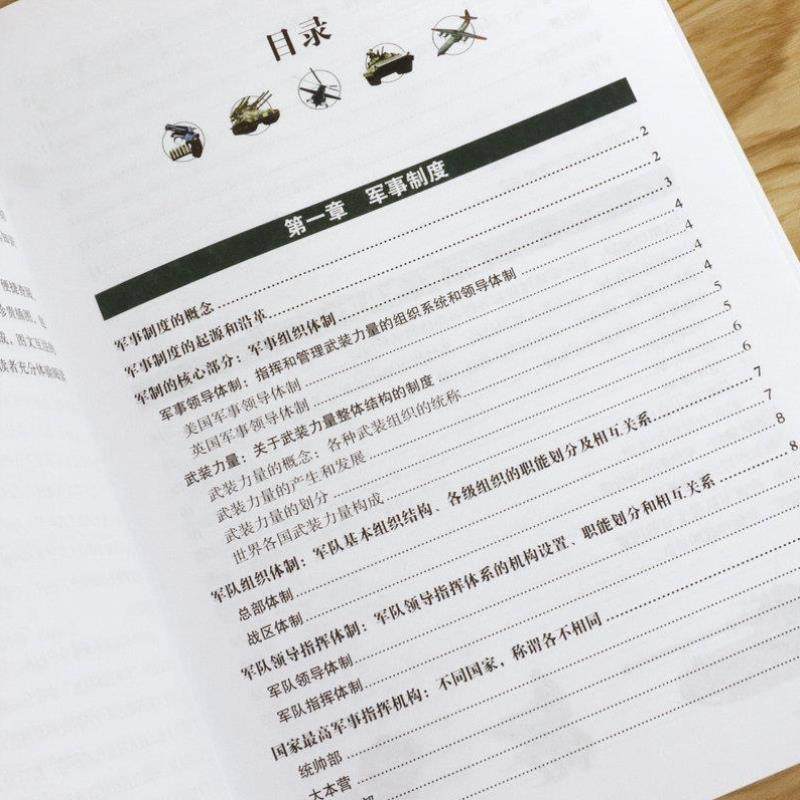 目录
第一章 军事制度
军事制度的概念 2
军事制度的起源和沿革 2
军制的核心部分：军事组织体制 3
军事领导体制：指挥和管理武装力量的组织系统和领导体制 4
美国军事领导体制 4
英国军事领导体制 4
武装力量：关于武装力量整体结构的制度 4
武装力量的概念：各种武装组织的统称 5
武装力量的产生和发展 5
武装力量的划分 6
世界各国武装力量构成 6
军队组织体制：军队基本组织结构、各级组织的职能划分及相互关系 7
总部体制 7
战区体制 8
军队领导指挥体制：军队领导指挥体系的机构设置、职能划分和相互关系 8
军队领导体制
军队指挥体制
国家最高军事指挥机构：不同国家，称谓各不相同
统帅部
大本营